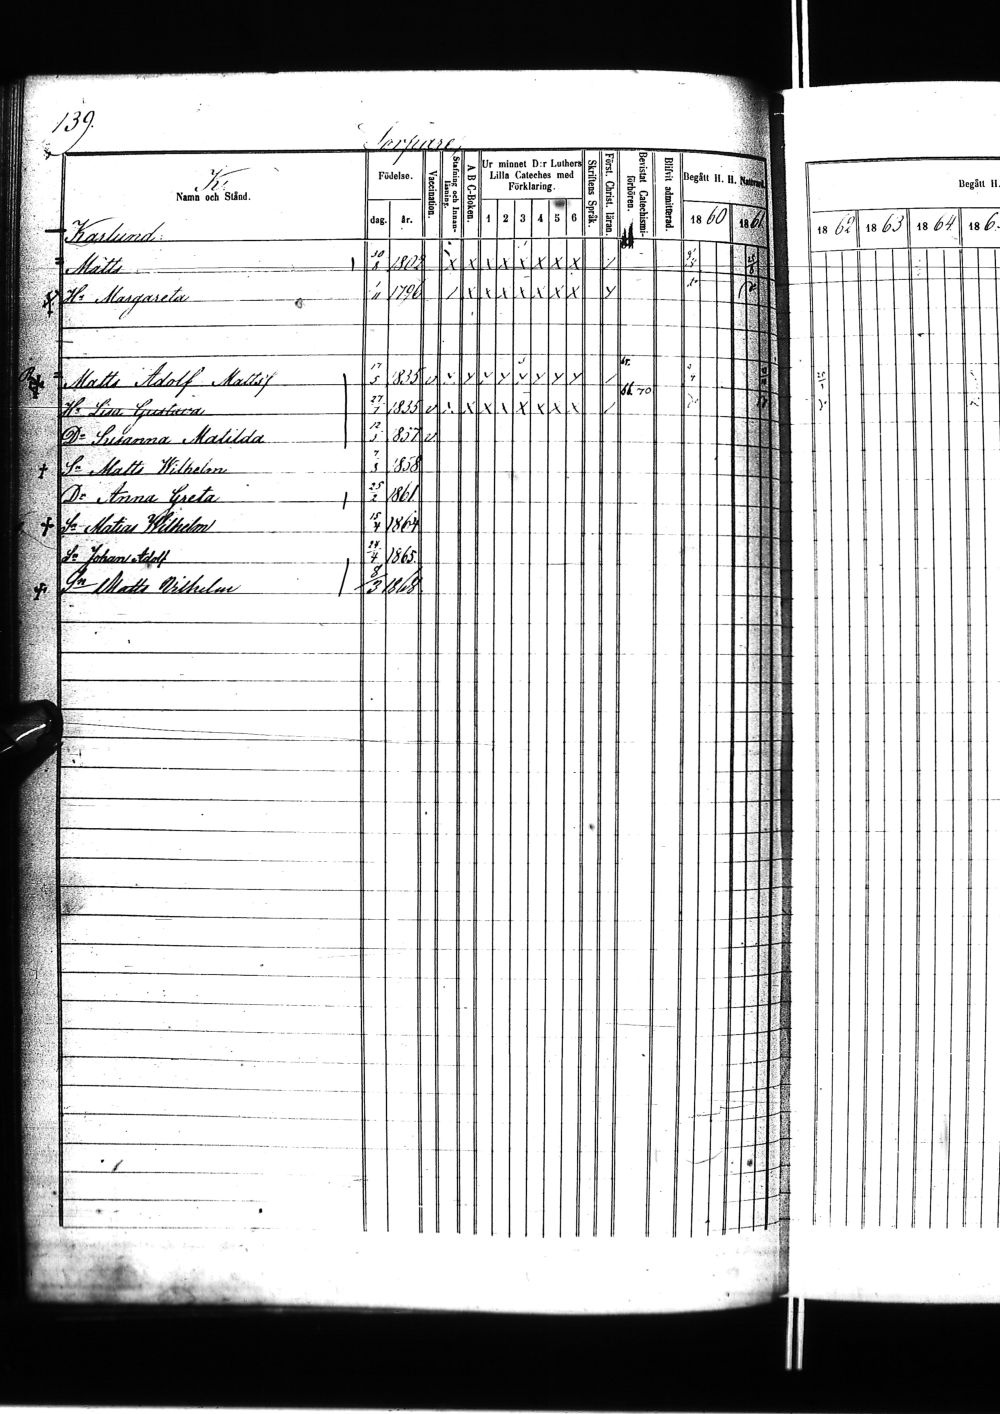 139.
Torpare
K.
Namn och Stånd. Födelse. dag. år. Vaccination. Stafning och Innanläsning. A B C-Boken. Ur minnet D:r Luthers Lilla Cateches med Förklaring. 1 2 3 4 5 6 Skriftens Språk. Först. Christ. läran. Bevistat Catechismiförhören. Blifvit admitterad. Begått H. H. Nattvard. 1860 1861
Begått H.
1862 1863 1864 186
Karlund.
Matts 30/8 1802 X X X X X X X X /
Hu Margareta 1/11 1796 / X X X X X X X Y
Matts Adolf Mattsf 17/5 1835 v
Hu Lisa Gustava 27/7 1835 v 70
Dr Susanna Matilda 12/5 1857 v
Sn Matts Wilhelm 7/3 1858
Dr Anna Greta 25/2 1861
Sn Matias Wilhelm 15/4 1864
Sn Johan Adolf 24/4 1865.
Sn Matts Vilhelm 8/3 1868